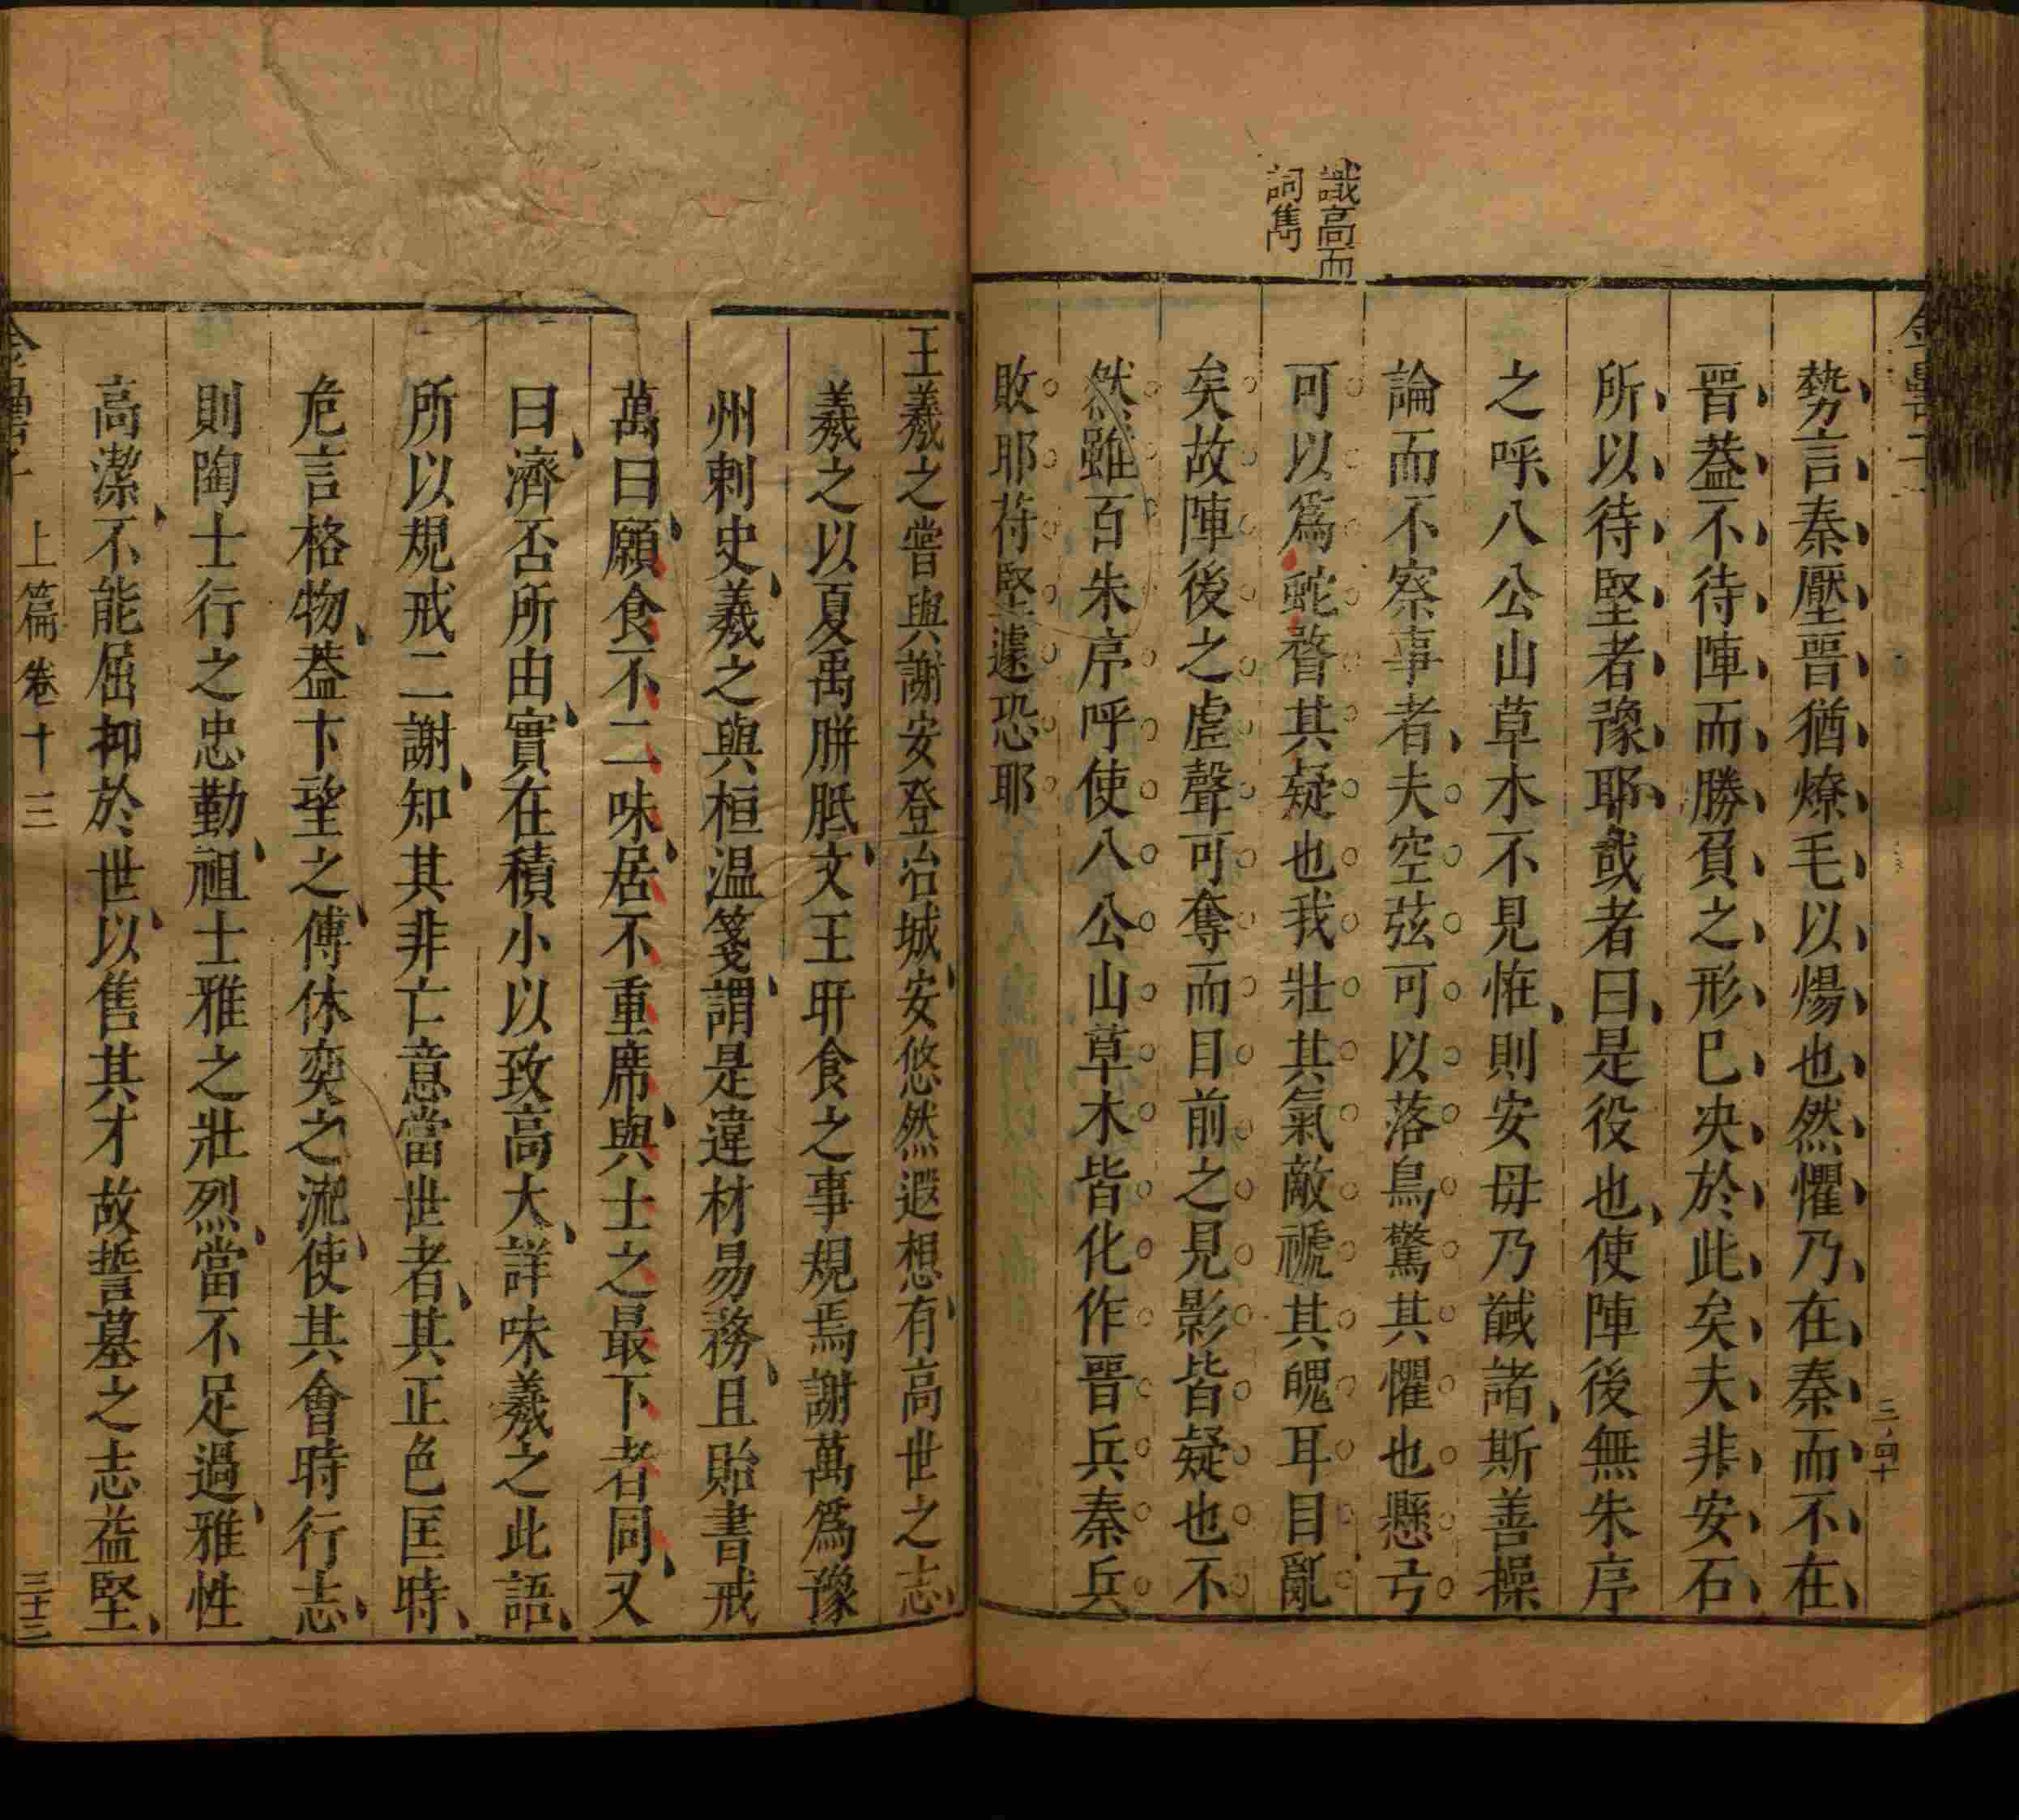 識高而
詞雋
勢言秦壓晉猶燎毛以煬也然懼乃在秦而不在
晉葢不待陣而勝負之形巳决於此矣夫非安石
所以待堅者豫耶或者曰是役也使陣後無朱序
之呼八公山草木不見恠則安毋乃馘諸斯善操
論而不察事者夫空弦可以落鳥驚其懼也懸弓
可以爲蛇瞀其疑也我壯其氣敵禠其魄耳目亂
矣故陣後之虛聲可奪而目前之見影皆疑也不
然雖百朱序呼使八公山草木皆化作晉兵秦兵
敗耶苻堅遽恐耶
王羲之嘗與謝安登冶城安悠然遐想有高世之志
羲之以夏禹胼胝文王旰食之事規焉謝萬爲豫
州刺史羲之與桓温箋謂是違材易務且貽書戒
萬曰願食不二味居不重席與士之最下者同又
曰濟否所由實在積小以致高大詳味羲之此語
所以規戒二謝知其非亡意當世者其正色匡時
危言格物葢卞望之傅休奕之流使其會時行志
則陶士行之忠勤祖士雅之壯烈當不足過雅性
高潔不能屈抑於世以售其才故誓墓之志葢堅
上篇卷十三
三十三